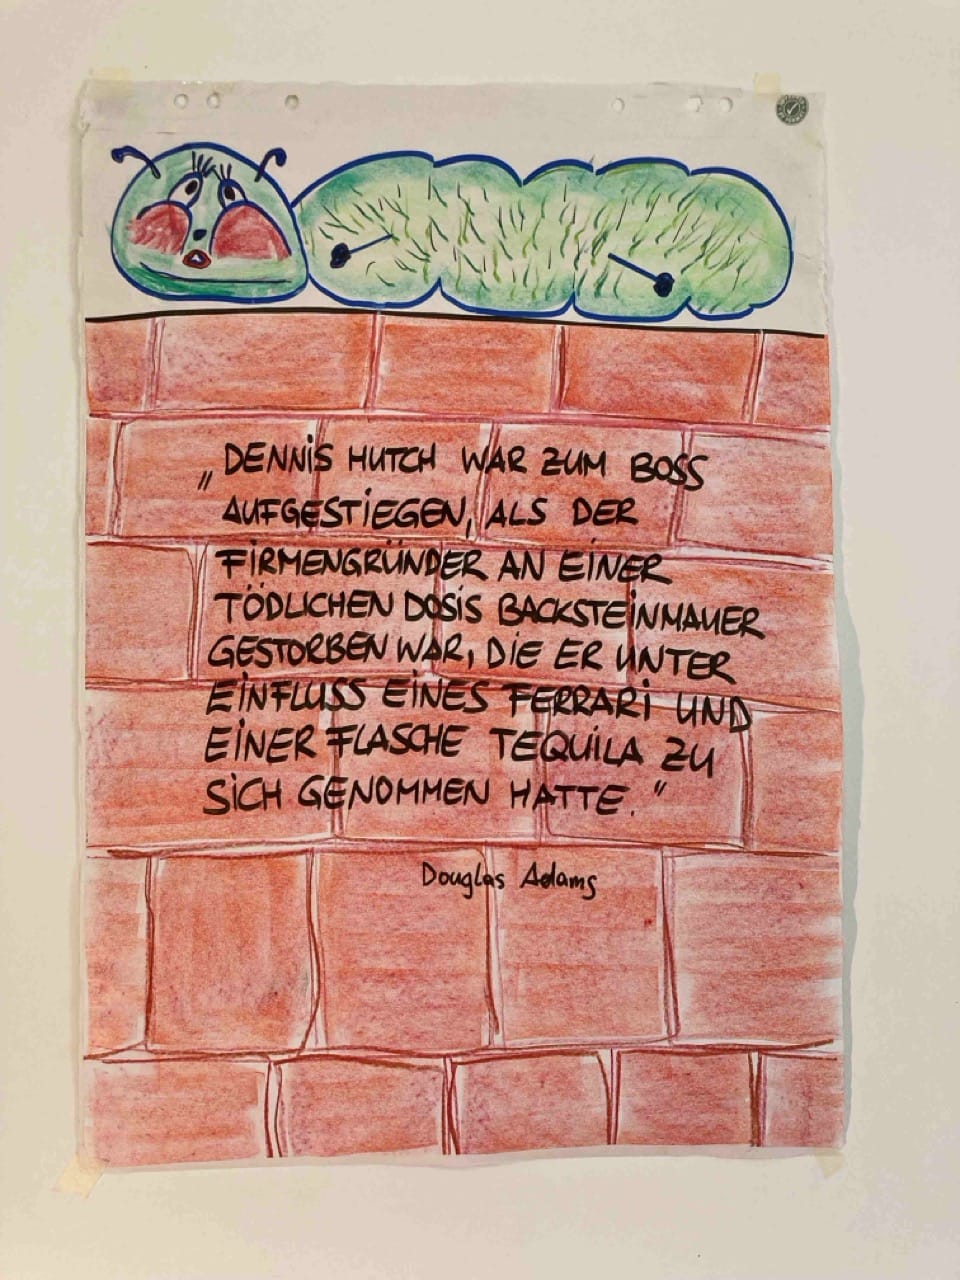 „DENNIS HUTCH WAR ZUM BOSS
AUFGESTIEGEN, ALS DER
FIRMENGRÜNDER AN EINER
TÖDLICHEN DOSIS BACKSTEINMAUER
GESTORBEN WAR, DIE ER UNTER
EINFLUSS EINES FERRARI UND
EINER FLASCHE TEQUILA ZU
SICH GENOMMEN HATTE."
Douglas Adams